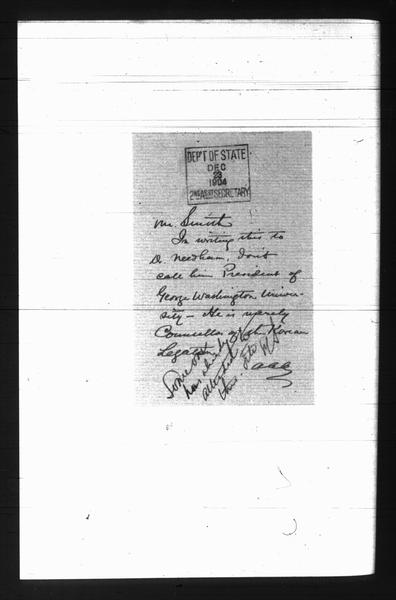 DEP'T OF STATE
DEC
23
1904
2ND ASS'T SECRETARY
Mr. Smith
In writing this to
Dr Needham, don't
call him President of
George Washington Univer-
sity — He is merely
Councellor of the Korean
Legation
Some one
has already
attended to
this
AAA